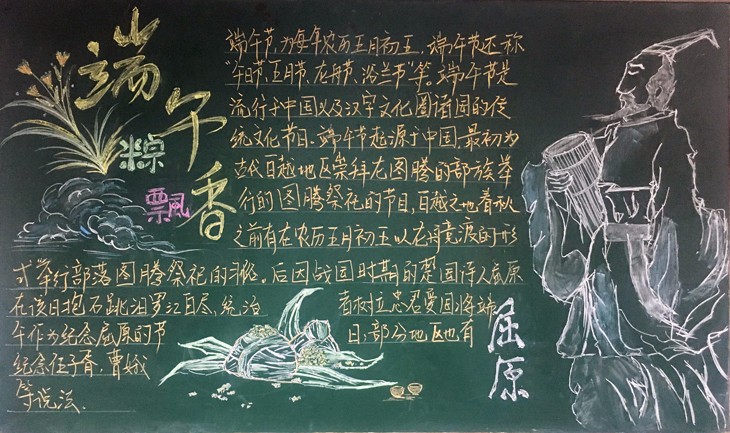 端午
粽
飘
香
端午节,为每年农历五月初五。端午节还称
“午日节、五月节、龙舟节、浴兰节”等。端午节是
流行于中国以及汉字文化圈诸国的传
统文化节日。端午节起源于中国,最初为
古代百越地区崇拜龙图腾的部族举
行的图腾祭祀的节日,百越之地春秋
之前有在农历五月初五以龙舟竞渡的形
式举行部落图腾祭祀的习俗。后因战国时期的楚国诗人屈原
在该日抱石跳汨罗江自尽,统治 者树立忠君爱国将端
午作为纪念屈原的节 日;部分地区也有
纪念伍子胥,曹娥
等说法.
屈原